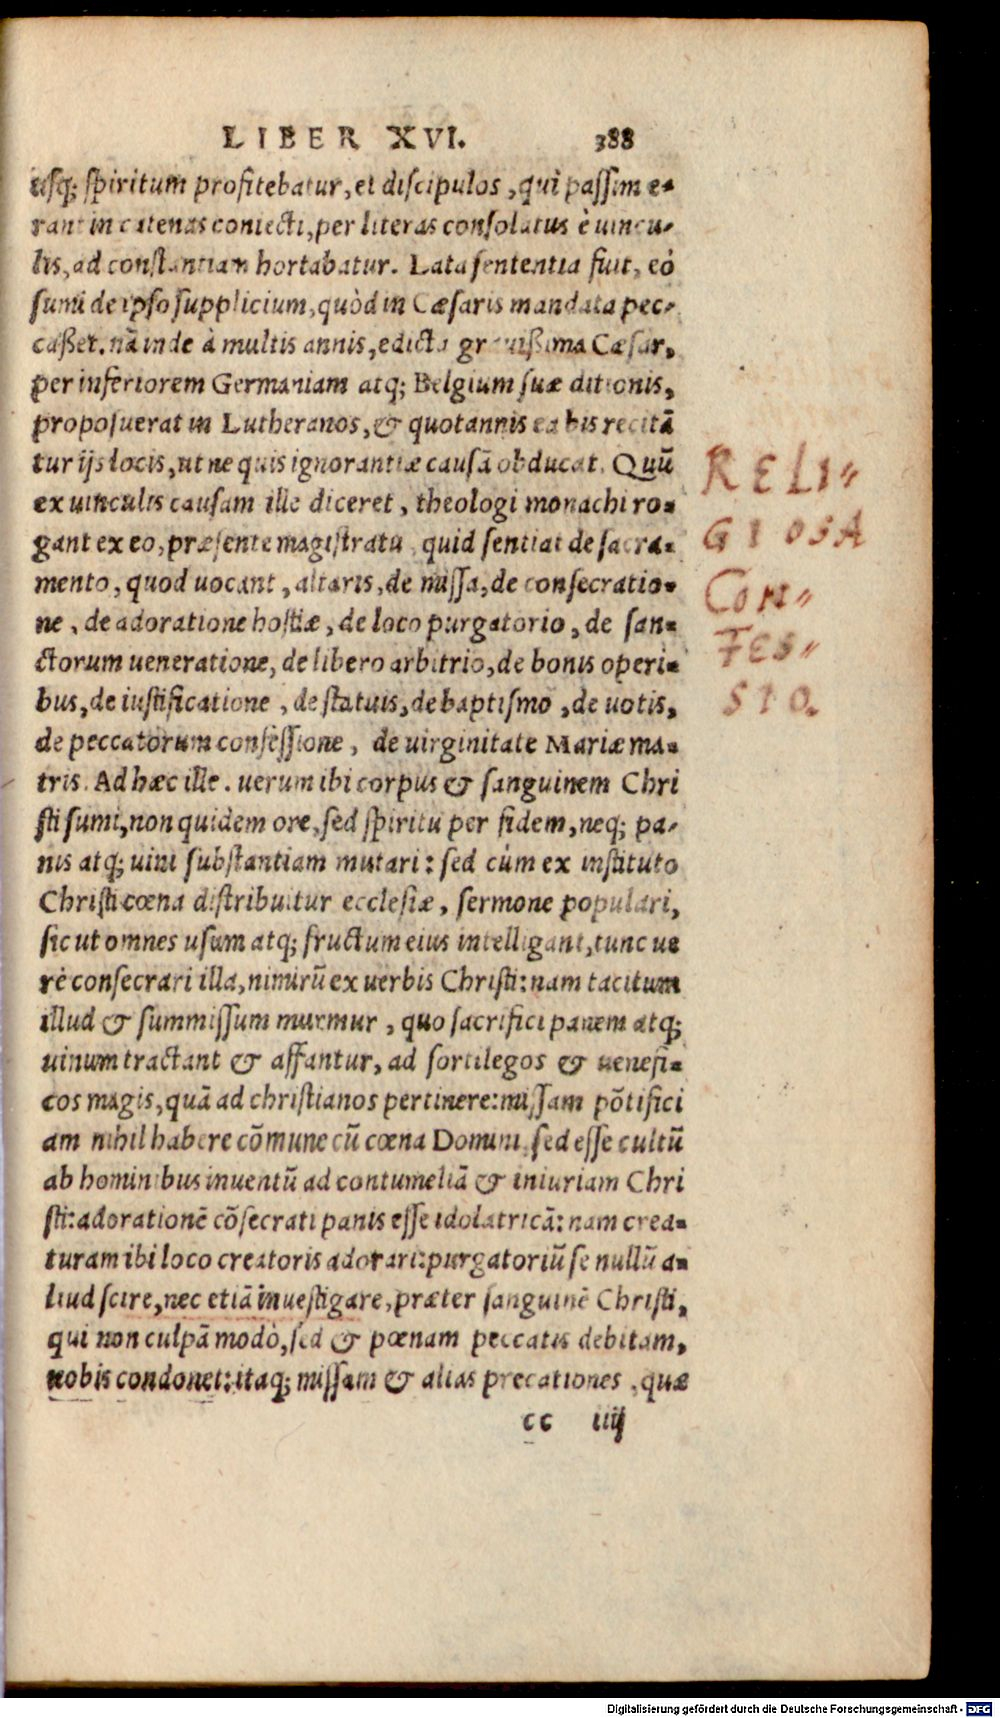 LIBER XVI. 388
usq; spiritum profitebatur, et discipulos, qui passim e-
rant in catenas coniecti, per literas consolatus è uincu-
lis, ad constantiam hortabatur. Lata sententia fuit, eò
sumi de ipso supplicium, quòd in Cæsaris mandata pec-
caßet. nā inde à multis annis, edicta grauißima Cæsar,
per inferiorem Germaniam atq; Belgium suæ ditionis,
proposuerat in Lutheranos, & quotannis ea bis recitā
tur ijs locis, ut ne quis ignorantiæ causā obducat. Quū
ex uinculis causam ille diceret, theologi monachi ro-
gant ex eo, præsente magistratu, quid sentiat de sacra-
mento, quod uocant, altaris, de missa, de consecratio-
ne, de adoratione hostiæ, de loco purgatorio, de san-
ctorum ueneratione, de libero arbitrio, de bonis operi-
bus, de iustificatione, de statuis, de baptismo, de uotis,
de peccatorum confessione, de uirginitate Mariæ ma-
tris. Ad hæc ille. uerum ibi corpus & sanguinem Chri
sti sumi, non quidem ore, sed spiritu per fidem, neq; pa-
nis atq; uini substantiam mutari: sed cùm ex instituto
Christi cœna distribuitur ecclesiæ, sermone populari,
sic ut omnes usum atq; fructum eius intelligant, tunc ue
rè consecrari illa, nimirū ex uerbis Christi: nam tacitum
illud & summissum murmur, quo sacrifici panem atq;
uinum tractant & affantur, ad sortilegos & uenefi-
cos magis, quā ad christianos pertinere: missam pōtifici
am nihil habere cōmune cū cœna Domini, sed esse cultū
ab hominibus inuentū ad contumeliā & iniuriam Chri
sti: adorationē cōsecrati panis esse idolatricā: nam crea-
turam ibi loco creatoris adorari: purgatoriū se nullū a-
liud scire, nec etiā inuestigare, præter sanguinē Christi,
qui non culpā modò, sed & pœnam peccatis debitam,
nobis condonet: itaq; missam & alias precationes, quæ
cc iiij
RELI-
GIOSA
CON-
FES-
SIO.
Digitalisierung gefördert durch die Deutsche Forschungsgemeinschaft - DFG